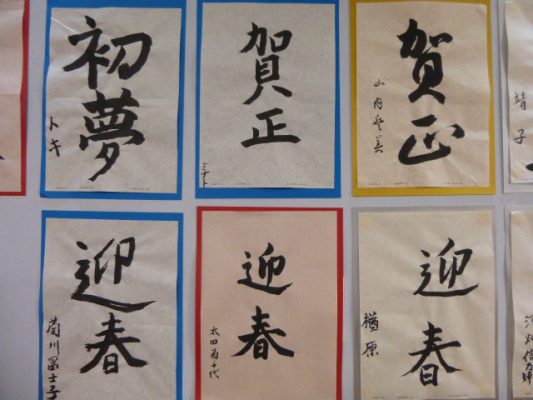 初夢
トキ
賀正
ミナト
賀正
山内
靖子
迎春
菊川冨士子
迎春
太田為千代
迎春
楢原